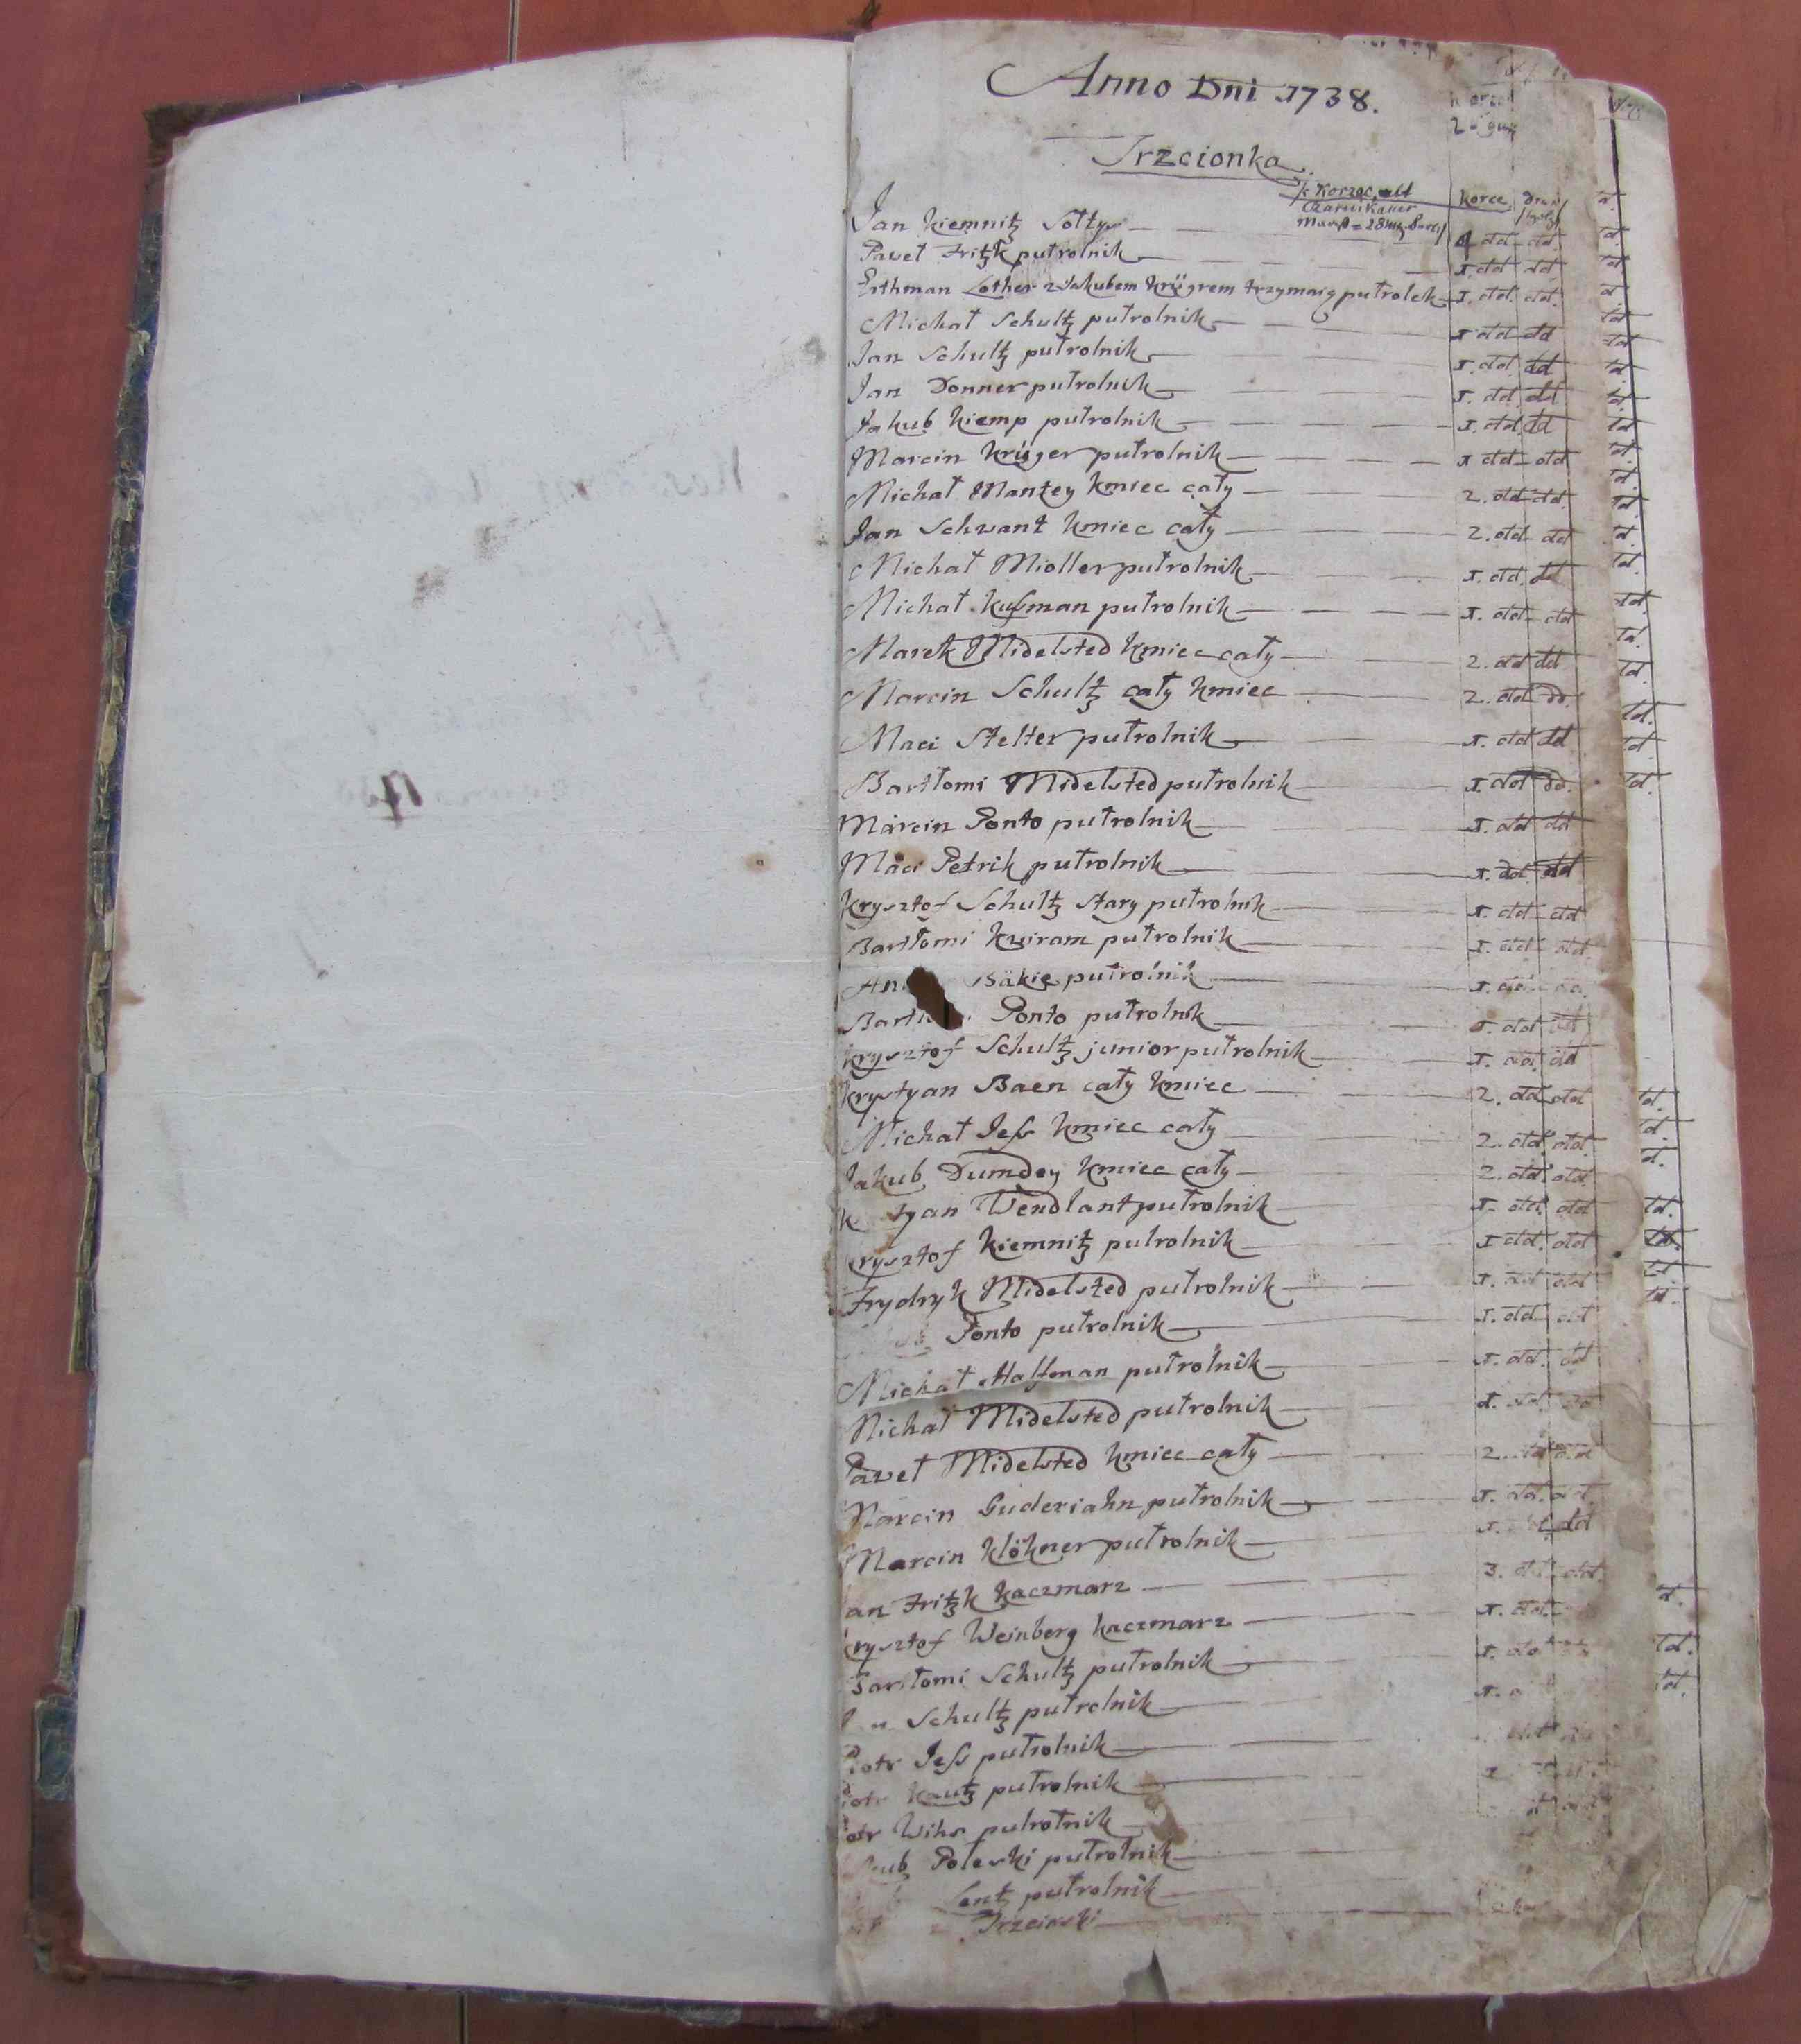 Anno Dni 1738.
Trzcionka
k Korzec, alt
Czarnikauer
korce
Jan Kiemnitz Sołtys 4 dd dd. td.
Paweł Fritzk putrolnik 1. dd dd td
Erthman Lother z Jakubem Krügrem trzymaią putrolek 1. dd. dd. d
Michał Schultz putrolnik 1 dd dd td
Jan Schultz putrolnik 1. dd dd td
Jan Donner putrolnik 1. dd dd td
Jakub Kiemp putrolnik 1. dd. dd td
Marcin Krüger putrolnik 1 dd dd td
Michał Mantey kmiec cały 2. dd dd. td
Jan Schwant kmiec cały 2. dd dd td
Michał Mioller putrolnik 1. dd. dd td.
Michał Kuſman putrolnik 1. dd dd dd.
Marek Midelsted kmiec cały 2. dd dd td.
Marcin Schultz cały kmiec 2. dd dd. td.
Maci Stelter putrolnik 1. dd dd td.
Bartłomi Midelsted putrolnik 1. dd dd. td
Marcin Ponto putrolnik 1. dd dd td.
Maci Petrik putrolnik 1. dd. dd
Krysztof Schultz stary putrolnik 1. dd dd
Bartłomi Kwiram putrolnik 1. dd dd.
An Bäkie putrolnik 1. dd
Barth Ponto putrolnik 1. dd dd
Krysztof Schultz junior putrolnik 1. dd. dd
Krystyan Baen cały kmiec 2. dd dd td.
Michał Jeſs kmiec cały 2. dd. dd. td.
Jakub Dumdey kmiec cały 2. dd. dd. td.
tyan Wendlant putrolnik 1. dd. dd td.
Krysztof Kiemnitz putrolnik 1 dd. dd td.
Frydryk Midelsted putrolnik 1. dd dd td
Ponto putrolnik 1. dd dd td.
Michał Halfman putrolnik 1. dd. dd
Michał Midelsted putrolnik 1. dd dd
Paweł Midelsted kmiec cały 2. dd dd
Marcin Guderiahn putrolnik 1. dd. dd.
Marcin Klökner putrolnik 1. dd
an Fritzk kaczmarz 3. dd dd. td.
Krysztof Weinberg kaczmarz 1. dd.
Bartłomi Schultz putrolnik 1. dd td.
Schultz putrolnik 1. td.
Piotr Jeſs putrolnik
Piotr Kautz putrolnik 1
otr Wihs putrolnik
kub Poleski putrolnik
Lentz putrolnik
Trzcinski